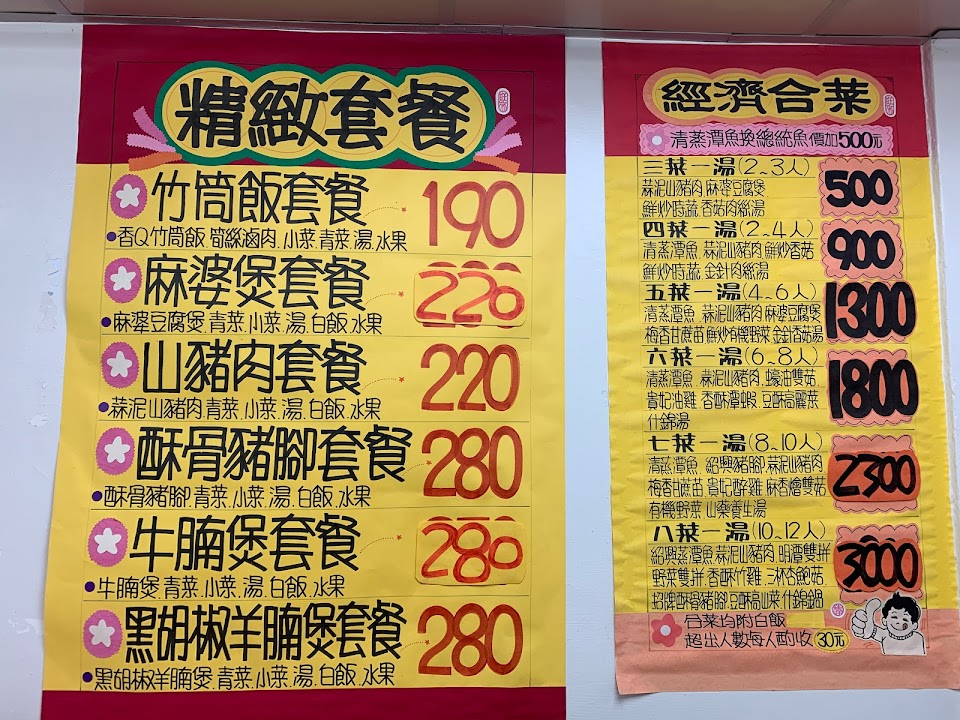 精緻套餐
竹筒飯套餐 190
香Q竹筒飯.筍絲滷肉.小菜.青菜.湯.水果
麻婆煲套餐 220
麻婆豆腐煲.青菜.小菜.湯.白飯.水果
山豬肉套餐 220
蒜泥山豬肉.青菜.小菜.湯.白飯.水果
酥骨豬腳套餐 280
酥骨豬腳.青菜.小菜.湯.白飯.水果
牛腩煲套餐 280
牛腩煲.青菜.小菜.湯.白飯.水果
黑胡椒羊腩煲套餐 280
黑胡椒羊腩煲.青菜.小菜.湯.白飯.水果
經濟合菜
清蒸潭魚換總統魚價加500元
三菜一湯(2~3人) 500
蒜泥山豬肉.麻婆豆腐煲
鮮炒時蔬.香菇肉絲湯
四菜一湯(2~4人) 900
清蒸潭魚.蒜泥山豬肉.鮮炒香菇
鮮炒時蔬.金針肉絲湯
五菜一湯(4~6人) 1300
清蒸潭魚.蒜泥山豬肉.麻婆豆腐煲
梅香甘蔗苗.鮮炒有機野菜.金針香菇湯
六菜一湯(6~8人) 1800
清蒸潭魚.蒜泥山豬肉.蠔油雙菇.
貴妃油雞.香酥潭蝦.豆酥高麗菜
什錦湯
七菜一湯(8~10人) 2300
清蒸潭魚.紹興豬腳.蒜泥山豬肉
梅香甘蔗苗.貴妃醉雞.麻香燴雙菇
有機野菜.山藥養生湯
八菜一湯(10~12人) 3000
紹興蒸潭魚.蒜泥山豬肉.明潭雙拼
野菜雙拼.香酥竹雞.三杯杏鮑菇.
招牌酥骨豬腳.豆酥高山菜.什錦鍋
合菜均附白飯
超出人數每人酌收30元